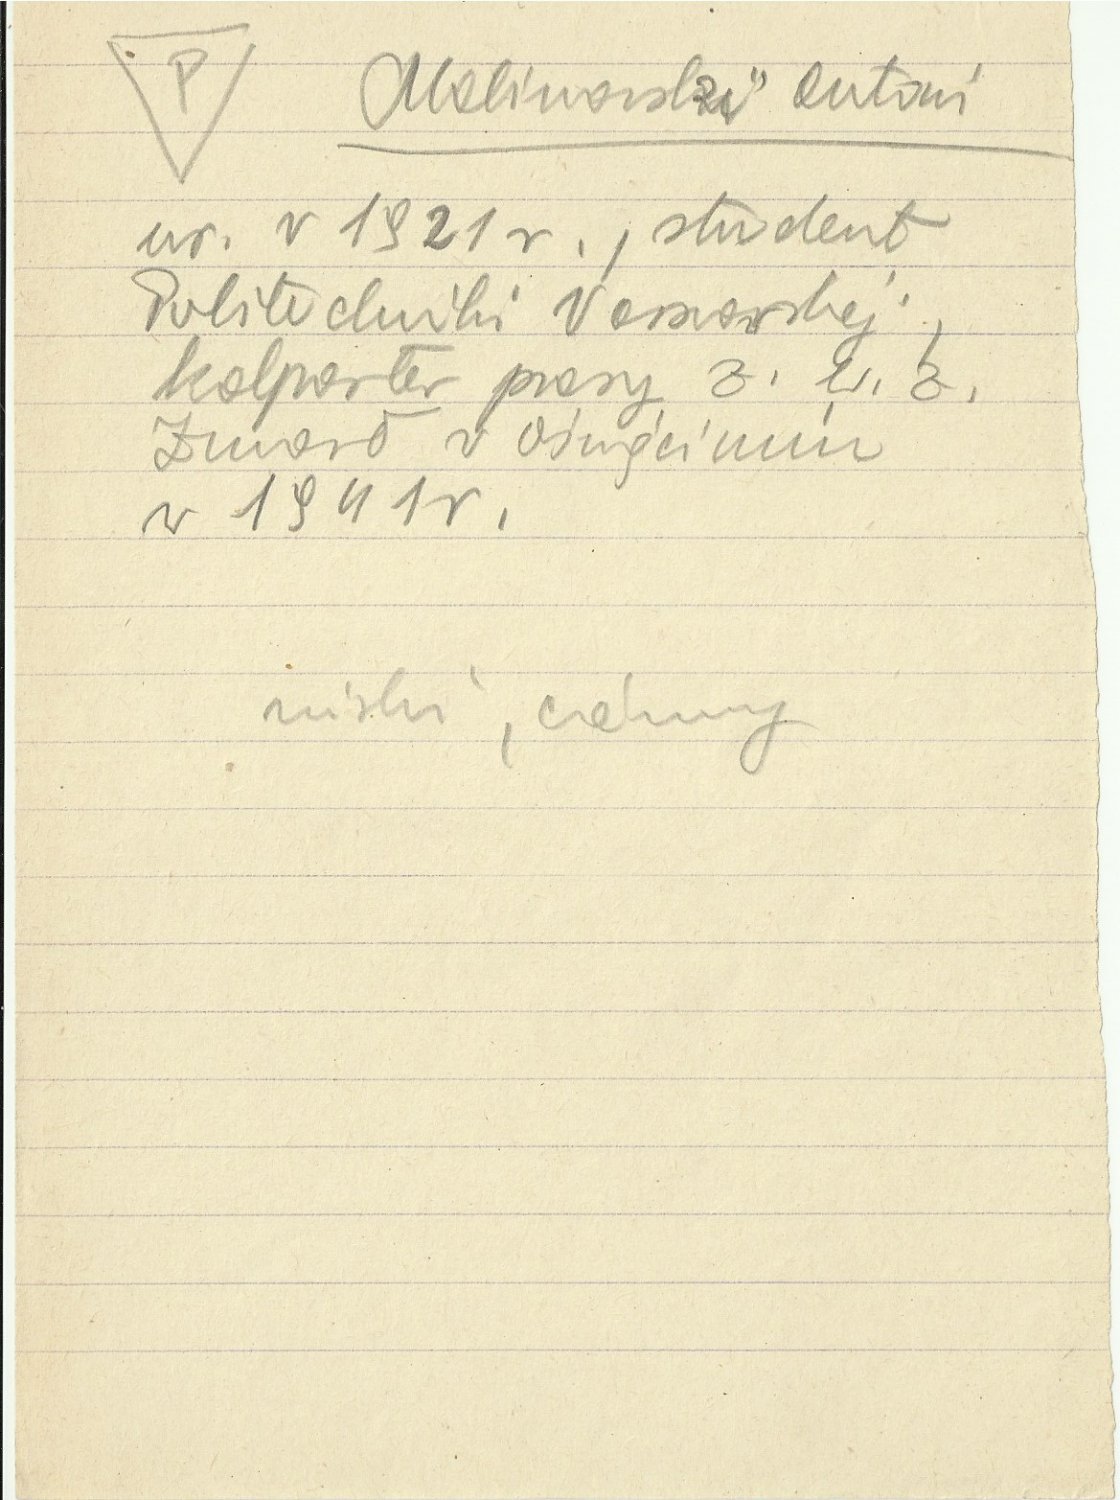 P
Malinowski Antoni
ur. w 1921 r., student
Politechniki Warszawskej,
kolporter prasy Z. W. Z.
Zmarł w Oświęcimiu
w 1941 r.
niski, czarny